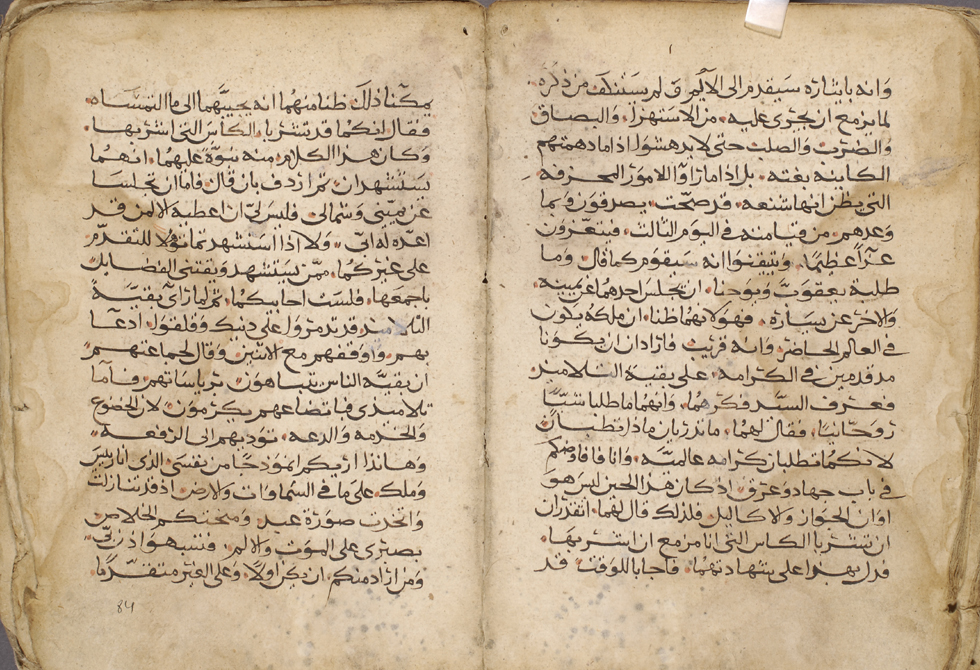 وانه بايثاره سيقدم الى الالام ولم يستنكف من ذكره
لما يزمع ان يجرى عليه من الاستهزاء والبصاق
والضرب والصلب حتى لا يدهشوا اذا ما دهمتهم
الكاينه بغته بل اذا ما راوا الامور المحزفه
التي يظن انها شنعه قد صحت يصدقون فيما
وعدهم من قيامته في اليوم الثالث فيتعزون
عزاً عظيماً ويتيقنوا انه سيقوم كما قال وما
طلبه يعقوب ويوحنا ان يجلس احدهما عن يمينه
والاخر عن يساره فهولا لهما ظنا ان ملكه يكون
في العالم الحاضر وانه قريب فارادا ان يكونا
مقدمين في الكرامه على بقيه التلاميذ
فعرف السيد فكرهما وانهما ما طلبا شيئاً
روحانيا فقال لهما ما تدريان ماذا تطلبان
لانكما تطلبان كرامه عالميه وانا فافاوضكم
في باب جهاد وعرق اذ كان هذا الحين ليس هو
اوان الجوائز ولا اكاليل فلذلك قال لهما اتقدران
ان تشربا الكاس التي انا مزمع ان اشربها
فدل بهذا على شهادتهما فاجابا للوقت قد
يمكننا ذلك ظنا منهما انه يجيبهما الى ما التمساه
فقال انكما قد تشربا الكاس التي اشربها
وكان هذا الكلام منه نبوة عليهما انهما
يستشهدان ثم اردف بان قال فاما ان تجلسا
عن يميني وشمالي فليس لي ان اعطيه الا لمن قد
اعده له ابي ولا اذا استشهدتما تؤهلا للتقدم
على غيركما ممن يستشهد ويقتني الفضايل
باجمعها فلست احابيكما ثم لما راى بقية
التلاميذ قد تذمروا على ذينك وقلقوا ادعا
بهم واوقفهم مع الاثنين وقال لجماعتهم
ان بقيه الناس يتباهون برياساتهم فاما
تلاميذي فباتضاعهم يكرمون لان الخضوع
والخدمه والدعه تؤديهم الى الرفعه
وهانذا اريكم انموذجا من نفسي الذي انا رييس
وملك على ما في السماوات والارض اذ قد تنازلت
واتخذت صورة عبد ومنحتكم الخلاص
بصبري على الموت والالم فتشبهوا اذن بي
ومن اراد منكم ان يكن اولاً وعلى الغير متقدما
84